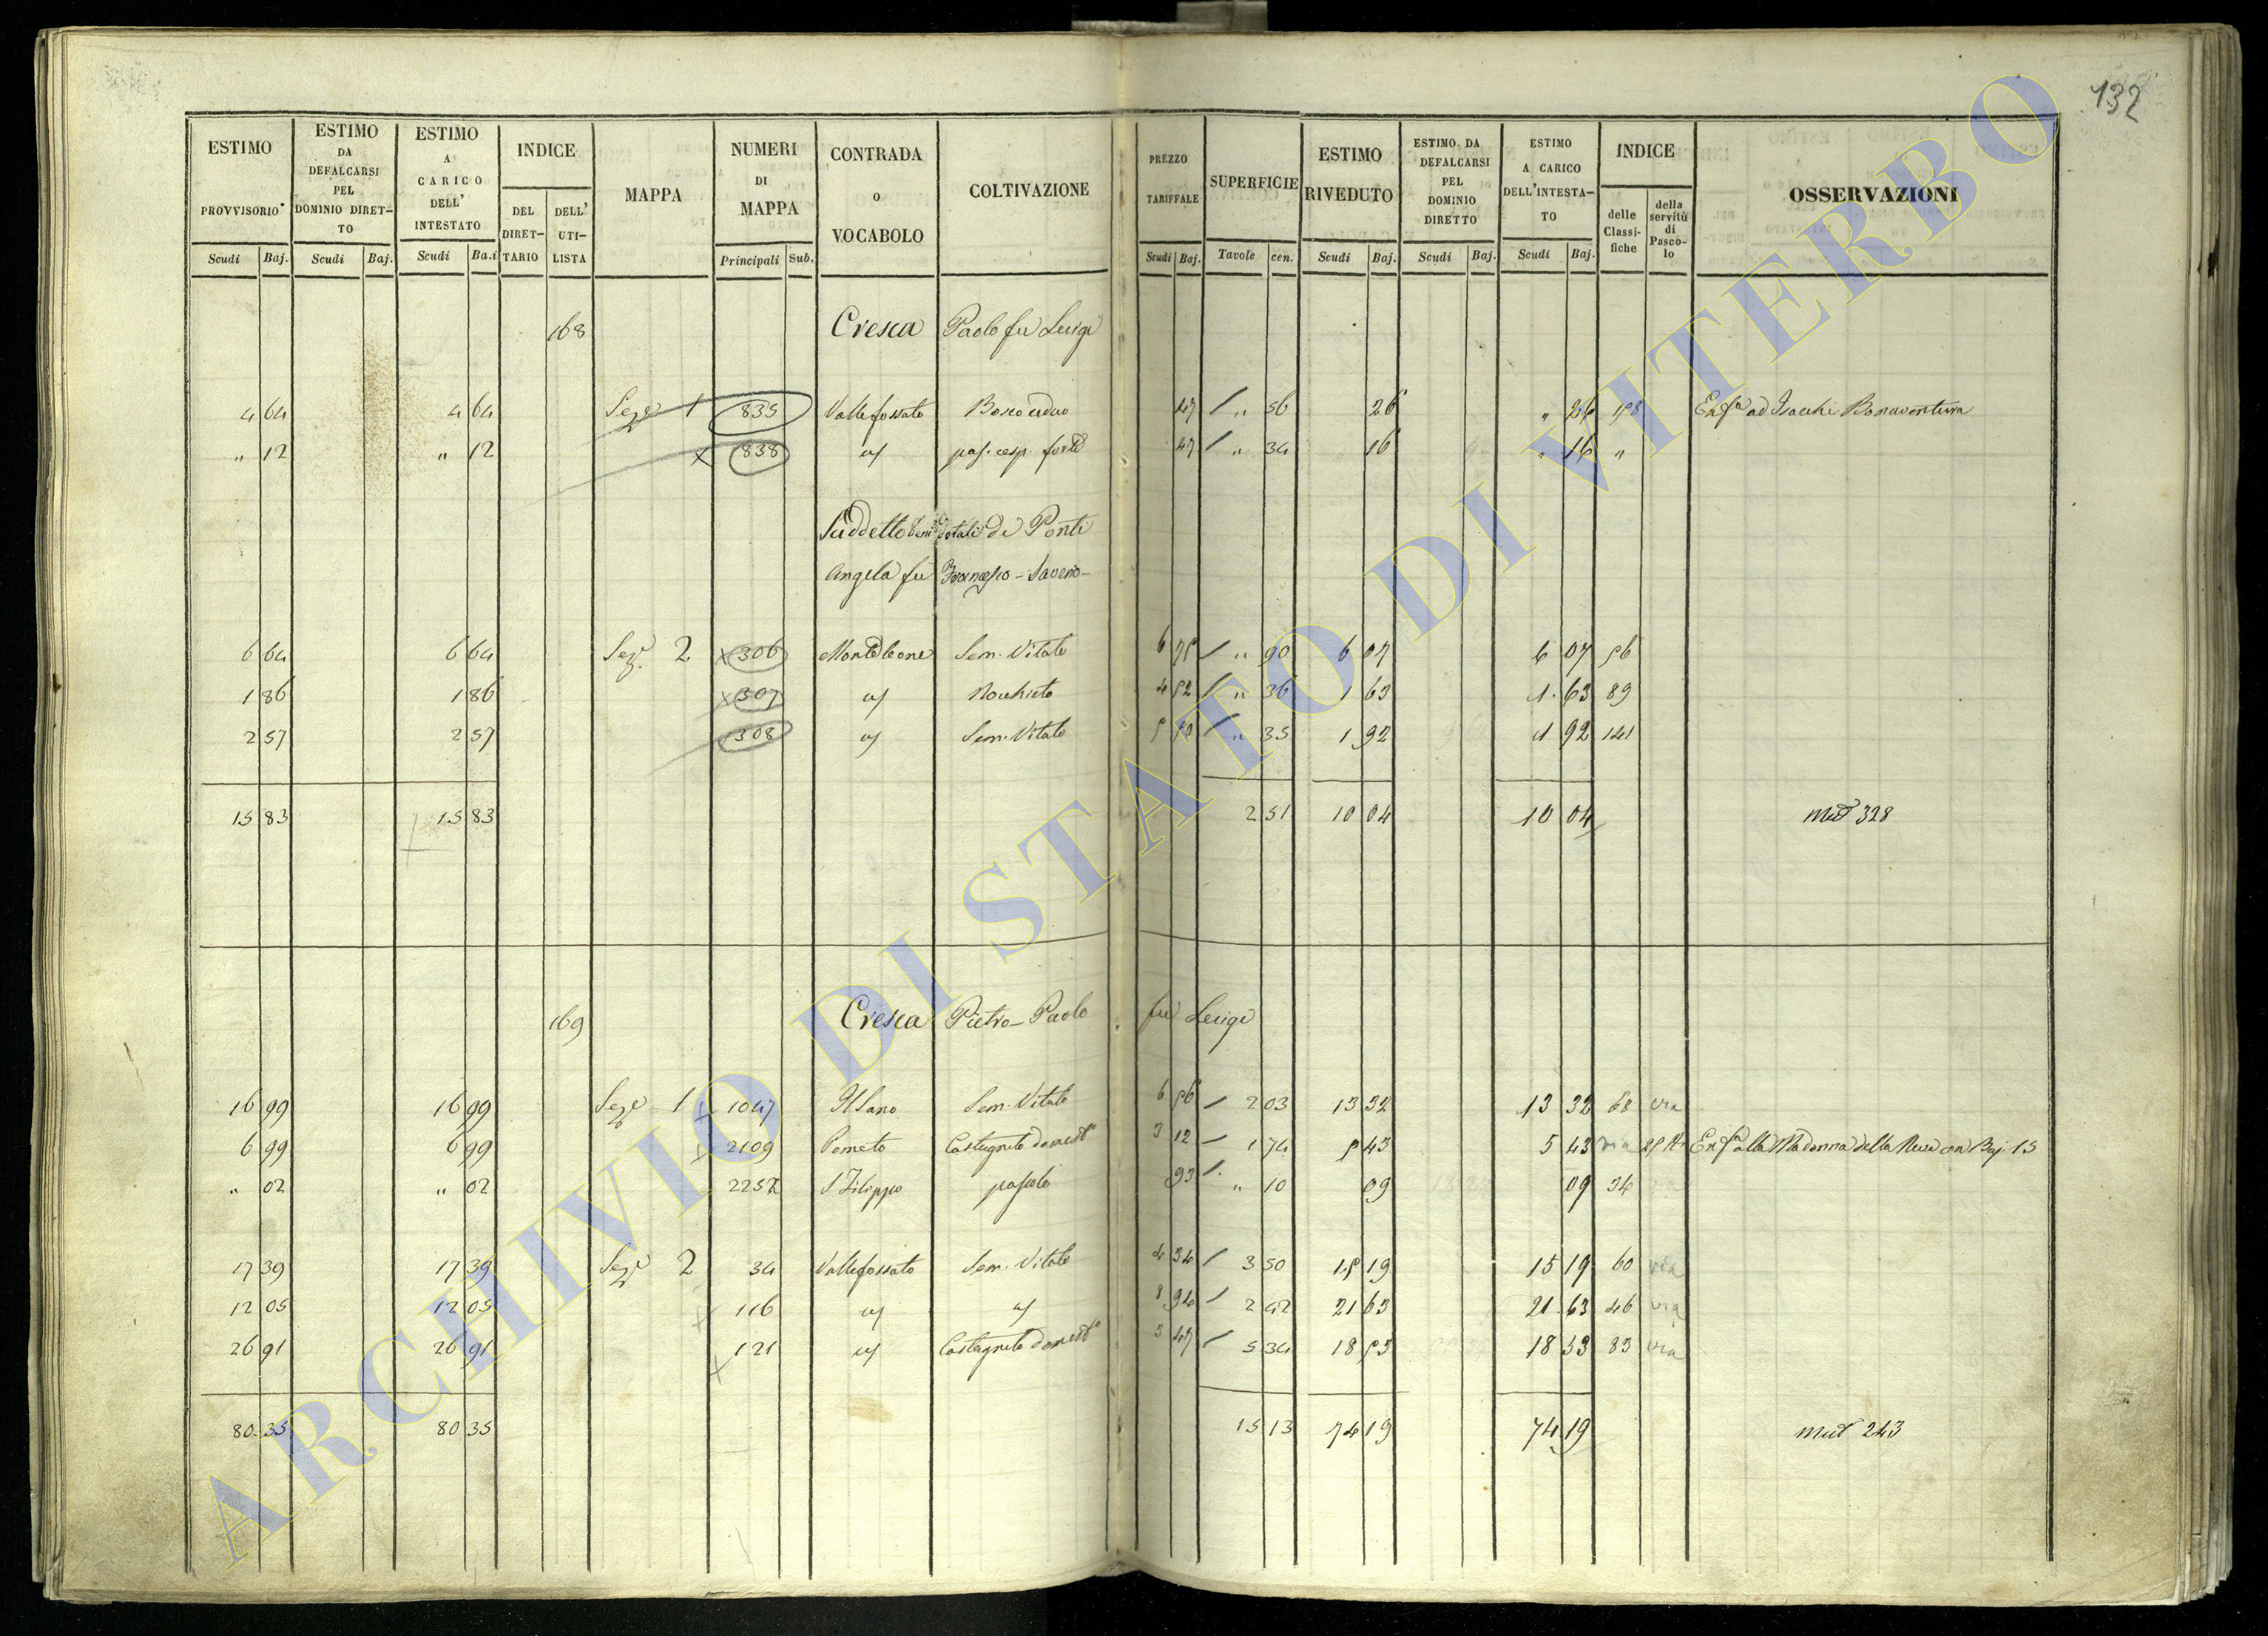 132
ESTIMO PROVVISORIO Scudi Baj. | ESTIMO DA DEFALCARSI PEL DOMINIO DIRETTO Scudi Baj. | ESTIMO A CARICO DELL' INTESTATO Scudi Ba.i | INDICE DEL DIRETTARIO DELL' UTILISTA | MAPPA | NUMERI DI MAPPA Principali Sub. | CONTRADA O VOCABOLO | COLTIVAZIONE | PREZZO TARIFFALE Scudi Baj. | SUPERFICIE Tavole cen. | ESTIMO RIVEDUTO Scudi Baj. | ESTIMO DA DEFALCARSI PEL DOMINIO DIRETTO Scudi Baj. | ESTIMO A CARICO DELL'INTESTATO Scudi Baj. | INDICE delle Classifiche della servitù di Pascolo | OSSERVAZIONI
168 Cresca Paolo fu Luigi
4 64 4 64 Seze 1 835 Vallefossato Bosco ceduo 47 " 56 26 " 26 158 Enfa ad Isacchi Bonaventura
" 12 " 12 838 " pas. cesp. forte 47 " 34 16 " 16 "
Suddetto beni dotali di Ponti
Angela fu Francesco - Saverio -
6 64 6 64 Seze 2 306 Monteleone Sem. Vitato 6 75 " 90 6 07 6 07 56
1 86 1 86 307 " Nocchieto 4 52 " 36 1 63 1 63 89
2 57 2 57 308 " Sem. Vitato 5 50 " 35 1 92 1 92 141
15 83 15 83 2 51 10 04 10 04 Mut 328
169 Cresca Pietro - Paolo fu Luigi
16 99 16 99 Seze 1 1047 Il Sano Sem. Vitato 6 56 2 03 13 32 13 32 68 via
6 99 6 99 2109 Pometo Castagneto domest° 3 12 1 74 5 43 5 43 via Enfa alla Madonna della Neve con Baj. 15
" 02 " 02 2257 S Filippo pascolo 93 " 10 09 09 34
17 39 17 39 Seze 2 34 Vallefossato Sem. Vitato 4 34 3 50 15 19 15 19 60 via
12 05 12 05 116 " " 8 94 2 42 21 63 21 63 46 via
26 91 26 91 121 " Castagneto domest° 3 47 5 34 18 53 18 53 83 via
80 35 80 35 15 13 74 19 74 19 Mut 243
ARCHIVIO DI STATO DI VITERBO